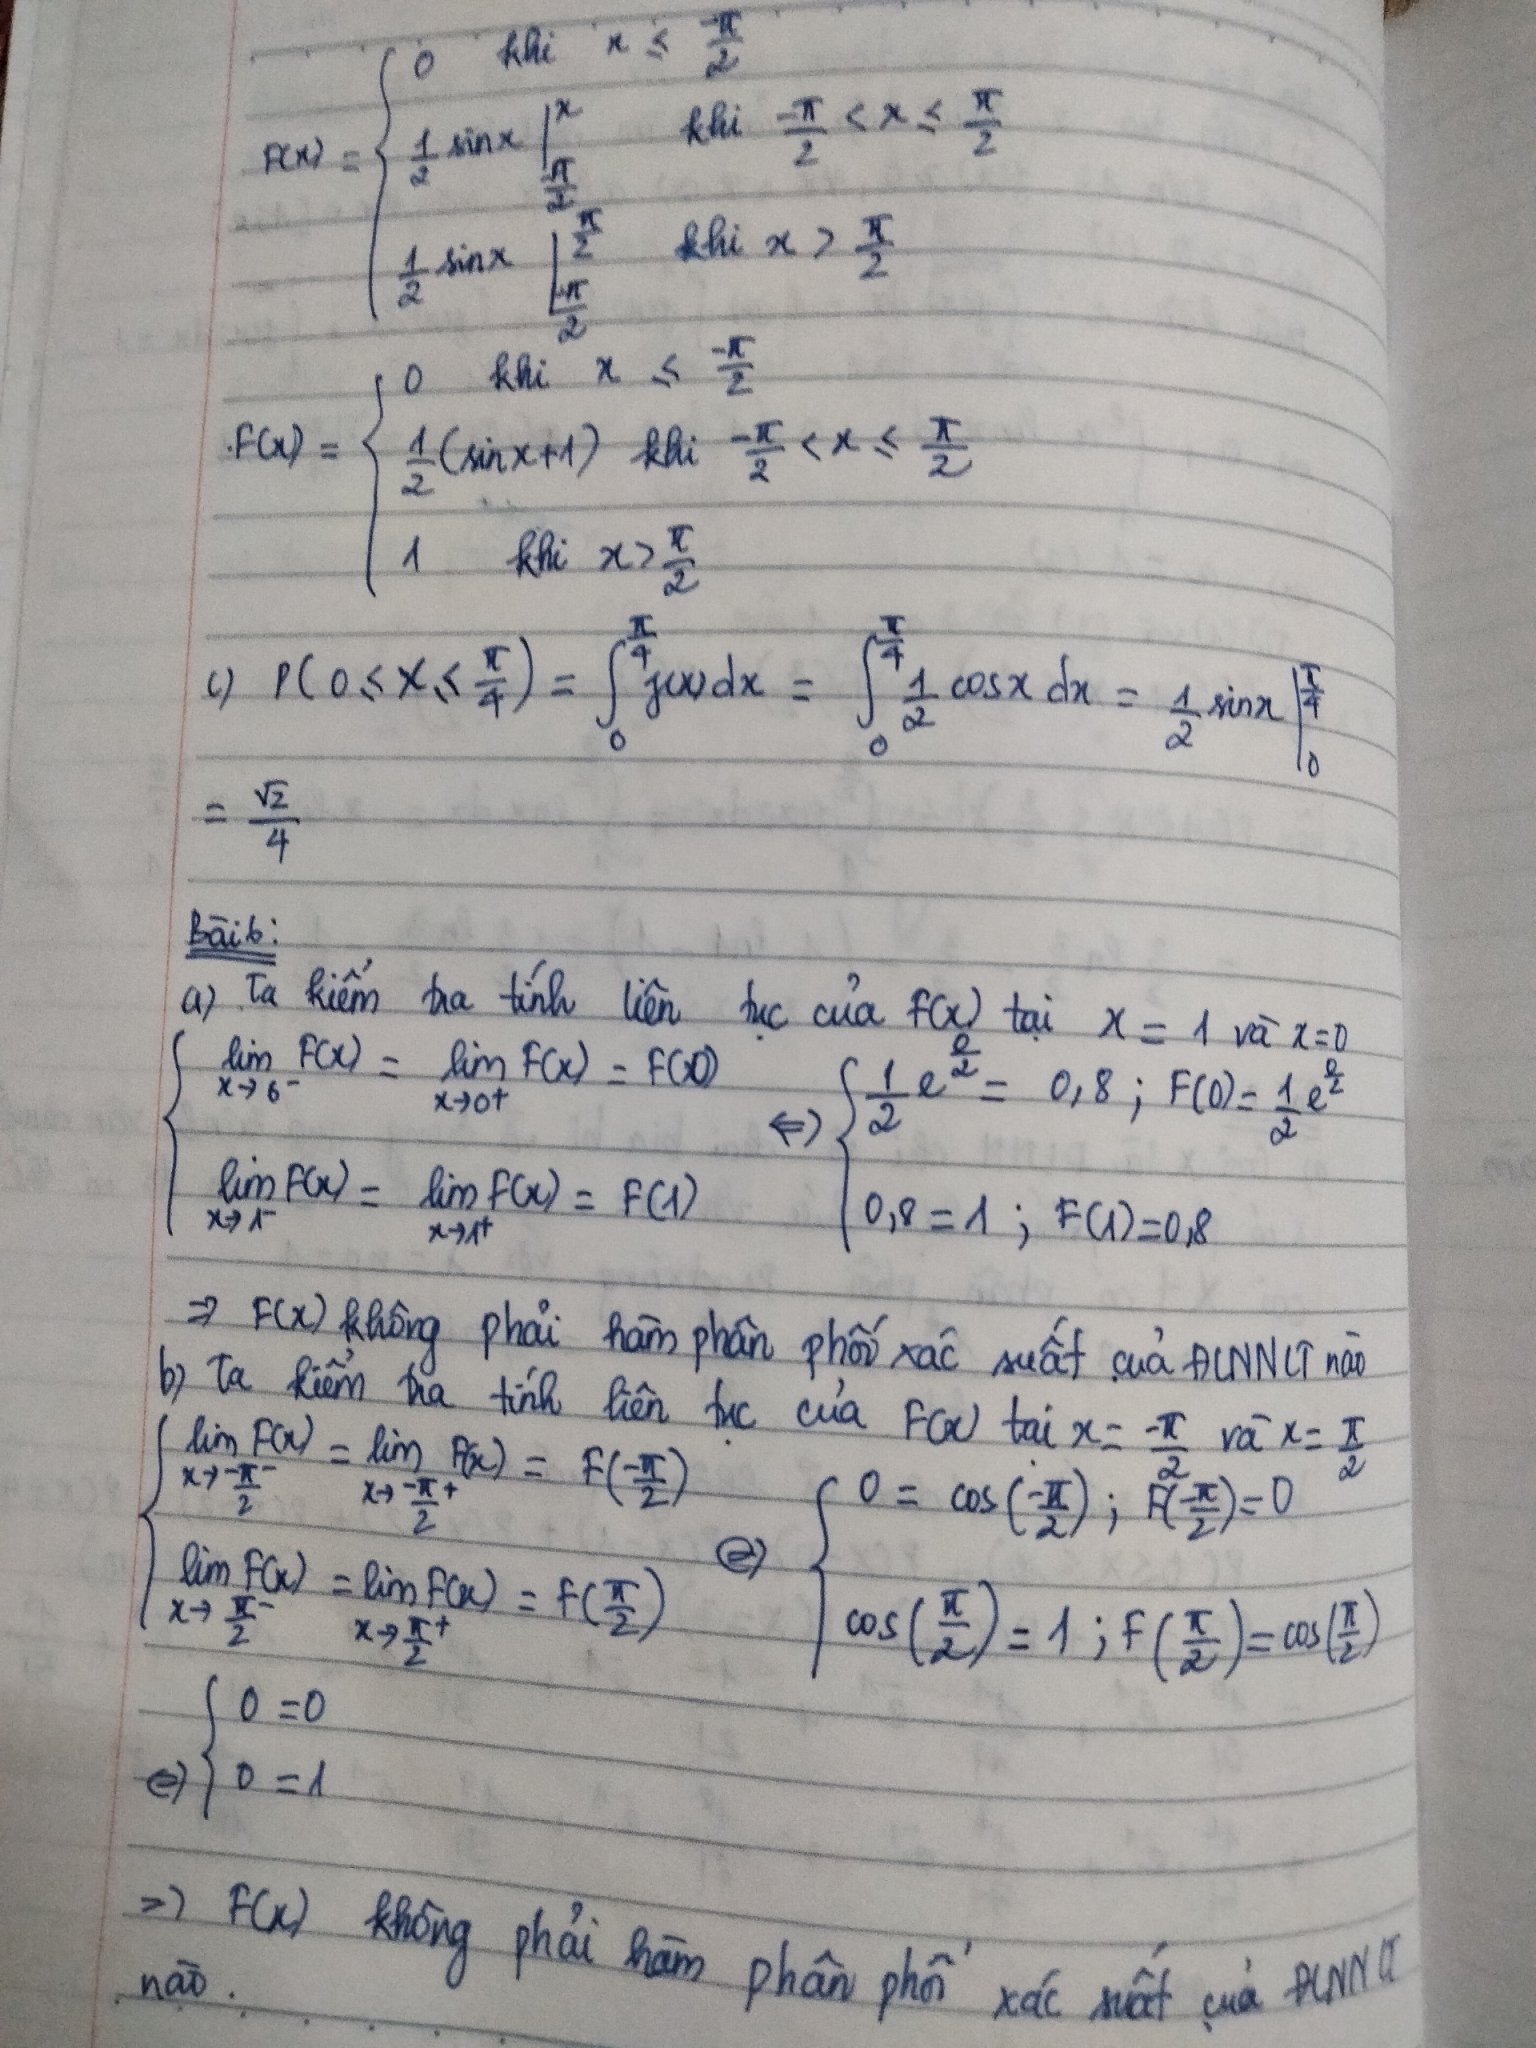 F(x) = { 0 khi x ≤ -π/2
1/2 sinx |_{-π/2}^{x} khi -π/2 < x ≤ π/2
1/2 sinx |_{-π/2}^{π/2} khi x > π/2
F(x) = { 0 khi x ≤ -π/2
1/2 (sinx+1) khi -π/2 < x ≤ π/2
1 khi x > π/2
c) P(0 ≤ X ≤ π/4) = ∫_0^{π/4} f(x) dx = ∫_0^{π/4} 1/2 cosx dx = 1/2 sinx |_0^{π/4}
= √2/4
Bài 6:
a) Ta kiểm tra tính liên tục của F(x) tại x = 1 và x=0
{ lim_{x→0⁻} F(x) = lim_{x→0⁺} F(x) = F(0) ⇔ { 1/2 e^{0/2} = 0,8 ; F(0) = 1/2 e^{0/2}
lim_{x→1⁻} F(x) = lim_{x→1⁺} F(x) = F(1) 0,8 = 1 ; F(1) = 0,8
⇒ F(x) không phải hàm phân phối xác suất của ĐLNNLT nào
b) Ta kiểm tra tính liên tục của F(x) tại x = -π/2 và x = π/2
{ lim_{x→-π/2⁻} F(x) = lim_{x→-π/2⁺} F(x) = F(-π/2) ⇔ { 0 = cos(-π/2) ; F(-π/2) = 0
lim_{x→π/2⁻} F(x) = lim_{x→π/2⁺} F(x) = F(π/2) cos(π/2) = 1 ; F(π/2) = cos(π/2)
⇔ { 0 = 0
0 = 1
⇒ F(x) không phải hàm phân phối xác suất của ĐLNNLT
nào.